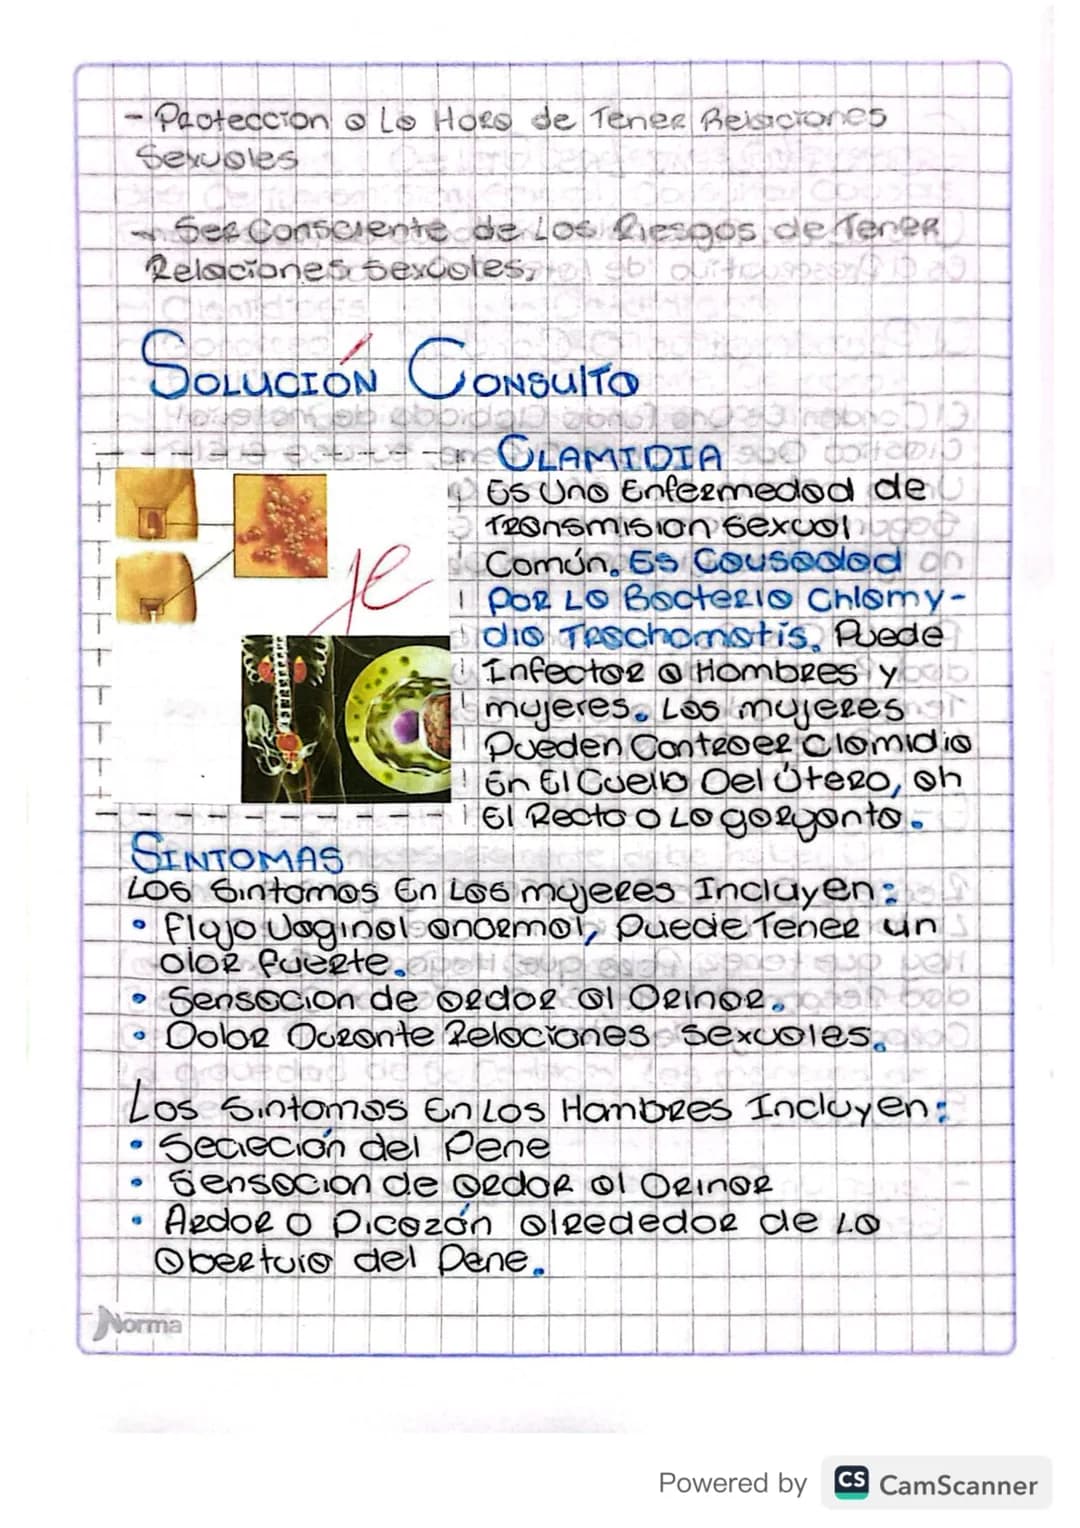 - Proteccion a La Hora de Tener Relaciones
Sexuales
- Ser Consciente de Los Riesgos de Tener
Relaciones sexuales,
SOLUCIÓN CONSULTA
CLAMIDIA
Es Una Enfermedad de
Transmision sexual
Común. Es Causadad
Por La Bacteria Chlamy-
dia Trachomatis. Puede
Infectar a Hombres y
mujeres. Las mujeres
Pueden Contraer Clamidia
En El Cuello Del Útero, en
El Recto o La garganta.
SINTOMAS
Los Sintomas En Las mujeres Incluyen:
• Flujo Vaginal anormal, Puede Tener un
olor fuerte.
• Sensacion de ardor al Orinar.
• Dolor Durante Relaciones sexuales.
Los Sintomas En Los Hombres Incluyen:
• Secreción del Pene
• Sensacion de ardor al Orinar
• Ardor o Picazón alrededor de La
Obertura del Pene.
Norma
Powered by CS CamScanner